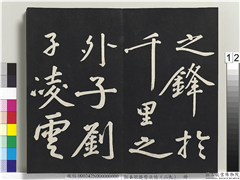 之鋒於
千里之
外子劉
子凌雲